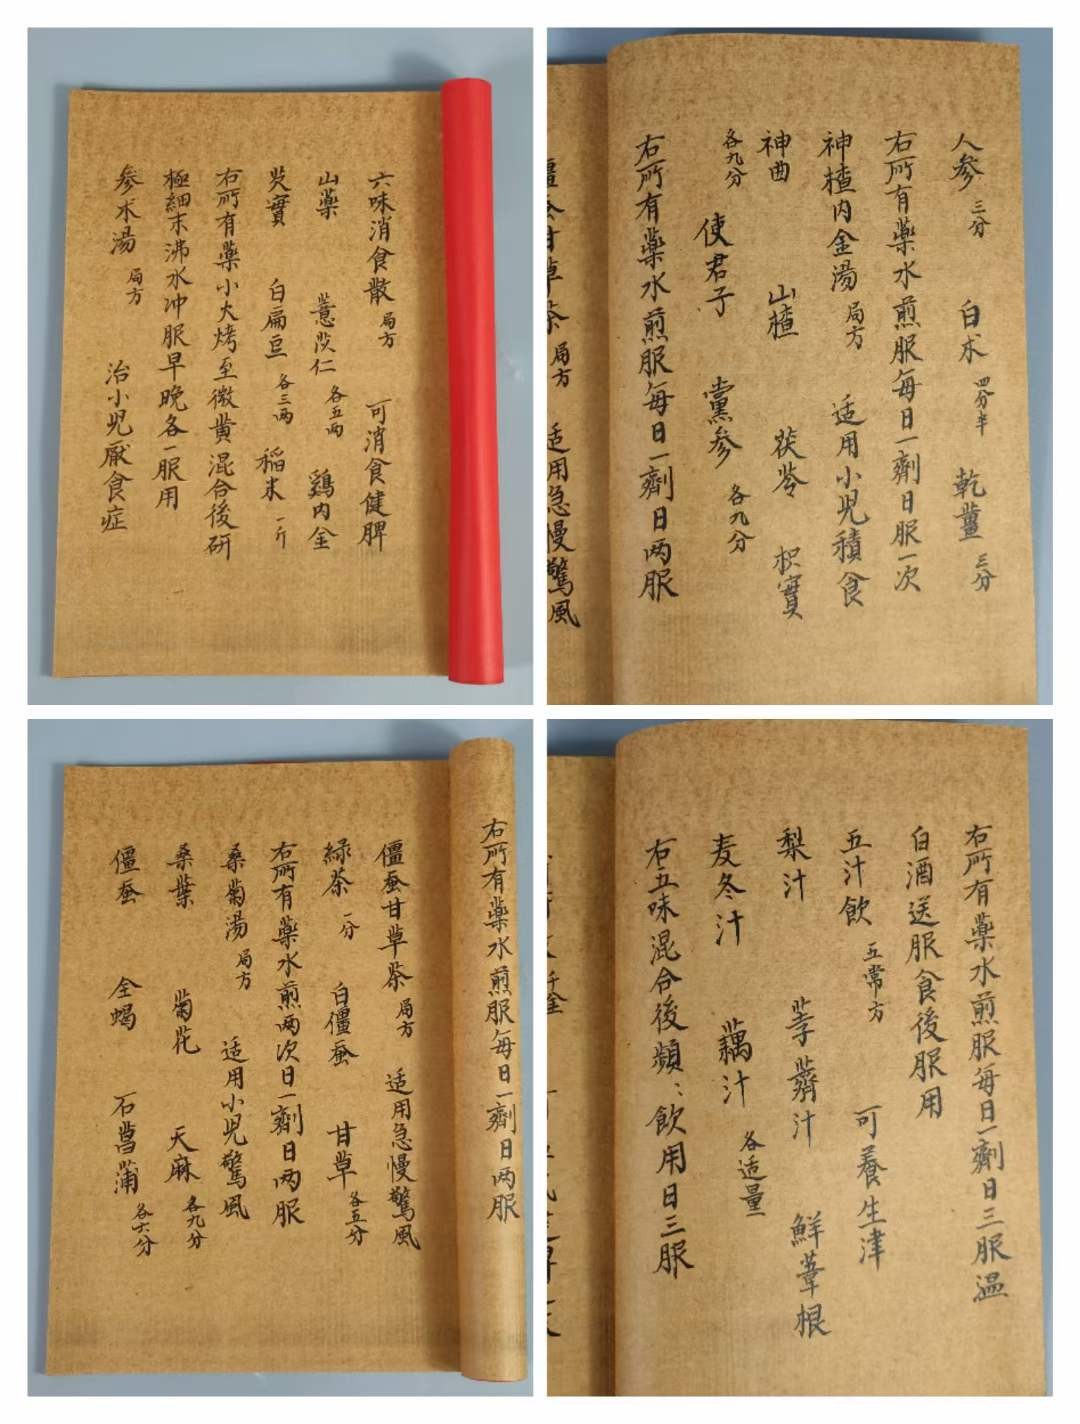 六味消食散 局方 可消食健脾
山藥 薏苡仁 各五两 鷄内金
芡實 白扁豆 各三两 稻米 一斤
右所有藥小火烤至微黄混合後研
極細末沸水冲服早晚各一服用
参术湯 局方 治小児厭食症
人参 三分 白术 四分半 乾薑 三分
右所有藥水煎服每日一劑日服一次
神楂内金湯 局方 适用小児積食
神曲 山楂 茯苓 枳實
各九分 使君子 黨参 各九分
右所有藥水煎服每日一劑日两服
僵蚕甘草茶 局方 适用急慢驚風
右所有藥水煎服每日一劑日两服
僵蚕甘草茶 局方 适用急慢驚風
緑茶 一分 白僵蚕 甘草 各五分
右所有藥水煎两次日一劑日两服
桑菊湯 局方 适用小児驚風
桑葉 菊花 天麻 各九分
僵蚕 全蝎 石菖蒲 各六分
右所有藥水煎服每日一劑日三服温
白酒送服食後服用
五汁飲 五常方 可養生津
梨汁 荸薺汁 鮮葦根
麦冬汁 藕汁 各适量
右五味混合後頻:飲用日三服